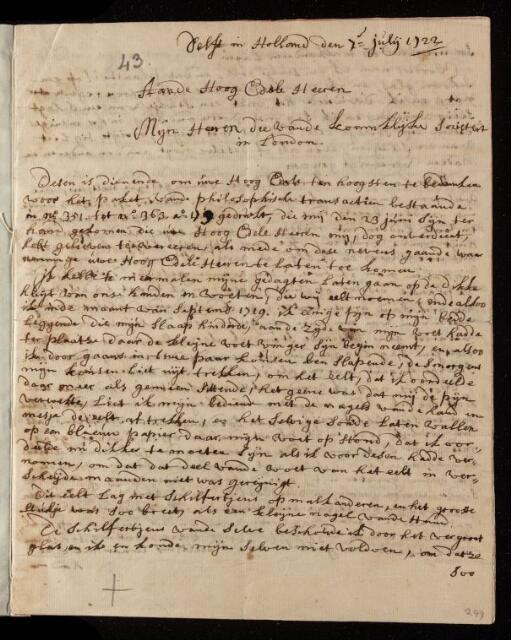 Delft in Holland den 7e julij 1722
43
Aande Hoog Edele Heeren
Mijn Heeren die vande Koninklijke Societeit
in London.
Desen is dienende om uwe Hoog Edele ten hoogsten te bedanken
voor het paket, vande philosophische transactien bestaande
in No 351 tot No 363 gedrukt, die mij den 23 junij sijn ter
hand gekomen die uwe Hoog Edele Heeren mij, dog onverdient,
hebt gelieven te vereeren, als mede om dese nevens gaande waar
neminge uwe Hoog Edele Heeren te laten toe komen.
Ik hebbe te meermalen mijne gedagten laten gaan op de dikke
huijt van onse handen en voeten, die wij eelt noemen, ende alsoo
ik inde maant van Septemb 1719. ik eenige pijn op mijn bedde
leggende die mijn slaap hinderde, aande zijde van mijn voet hadde
ter plaatse daar de kleijne voet vinger sijn begin neemt, en, alsoo
ik door gaans in twee paar kousen ben slapende, de smorgens
mijn kousen liet uijt trekken, om het eelt, dat ik oordeelde
daar meer als gemeen sittende, het geene was dat mij de pijn
verwekte, liet ik mijn bediende met de nagels vande hand en
mesje de eelt af trekken, en het selvige soude laten vallen
op een blauw papier daar mijn voet op stond, dat ik oor-
deelde mij dikker te moeten sijn als ik voor desen hadde ver-
nomen, om dat dat deel vande voet van het eelt in ver-
scheijde maanden niet was gereijnigt.
Dit eelt lag met schilfertjens op malkanderen, en het grootste
stukje was soo breet, als een kleijne nagel vande hand.
De schilfertjens vande selve beschoude ik door het vergroot
glas, en ik en konde mijn selven niet voldoen, om dat ze
soo
249